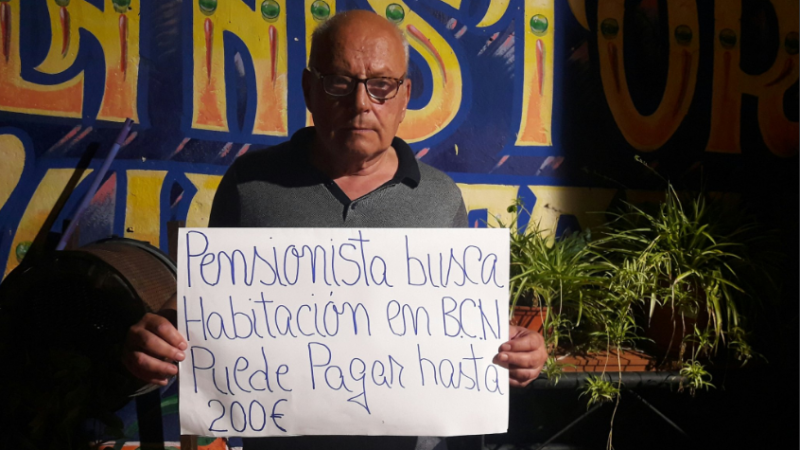 Pensionista busca
Habitación en B.C.N
Puede Pagar hasta
200€